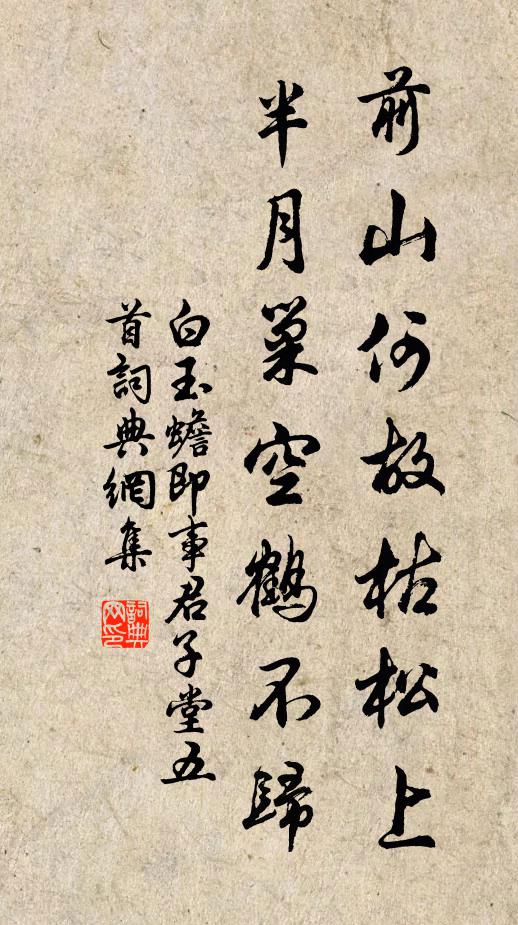 前山何故枯松上
半月巢空鶴不歸
白玉蟾即事君子堂五
首詞典網集
詞典网印